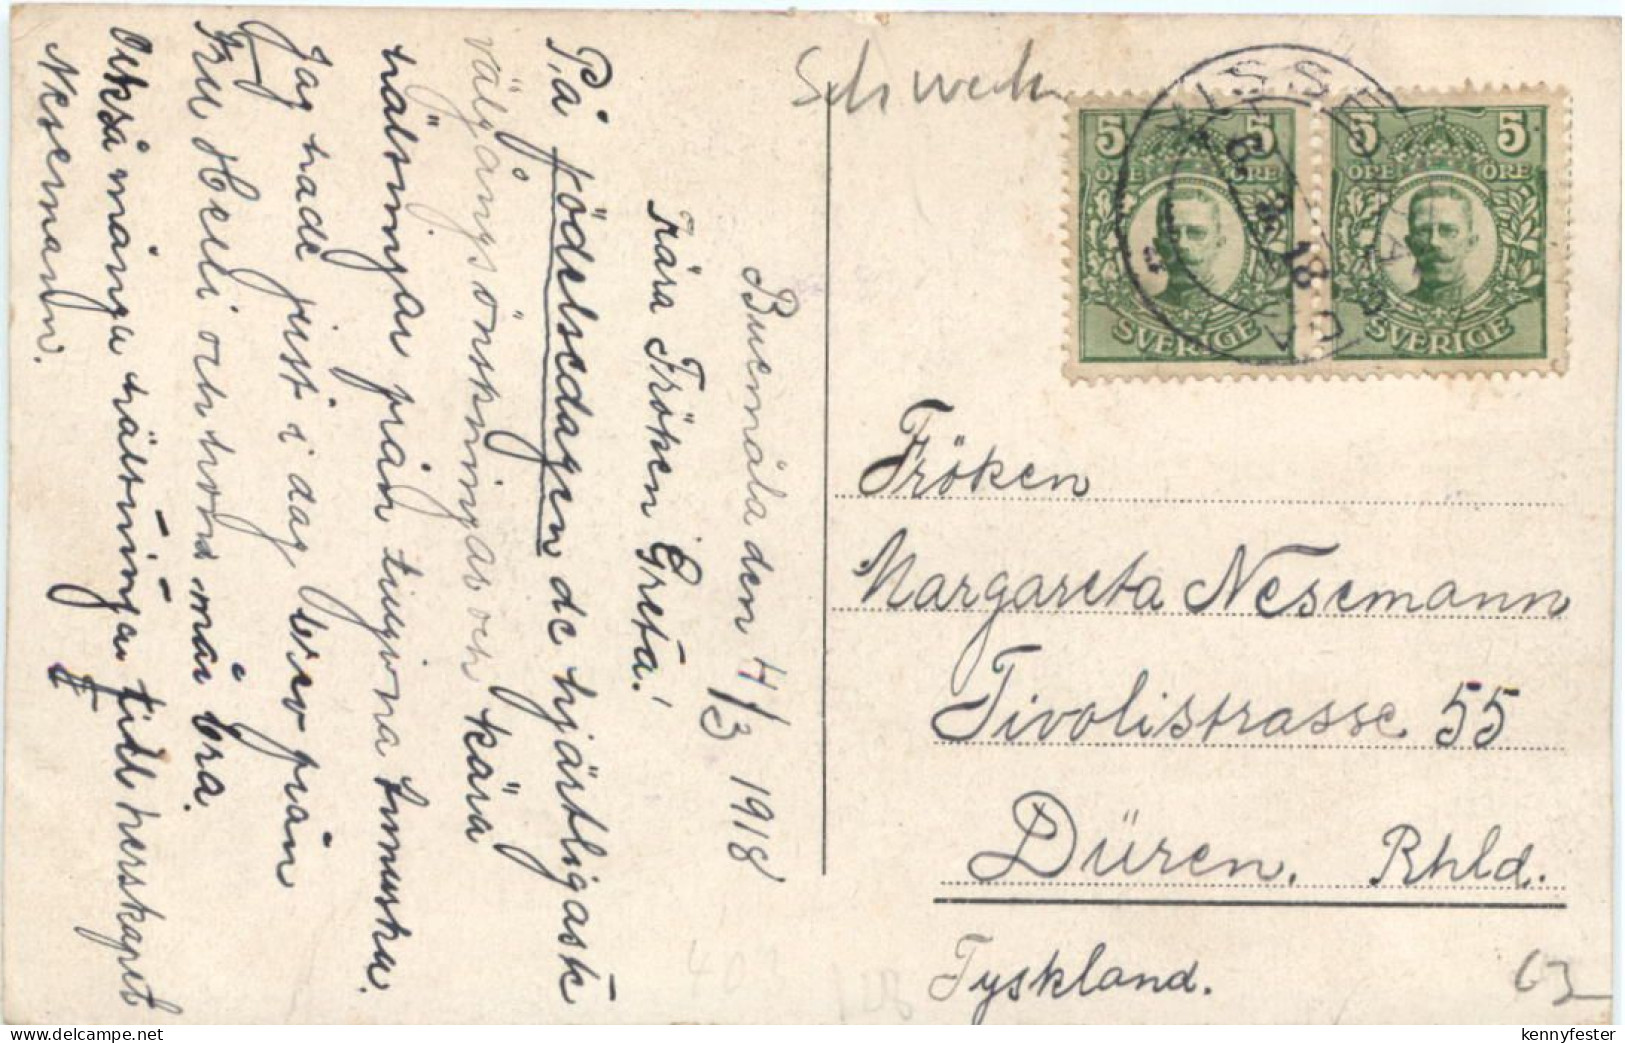 Schweden
5 5
ÖRE ÖRE
SVERIGE
5 5
ÖRE ÖRE
SVERIGE
6. 3. 18
Buemåla den 4/3 1918
Kära Fröken Greta!
På födelsedagen de hjärtligaste
välgångsönskningar och kära
hälsningar från tillgivna
Jag hade just i dag brev från
Fru Heli och hon mår bra.
Också många hälsningar till herrskapet
Nesemann.
Fröken
Margareta Nesemann
Tivolistrasse 55
Düren. Rhld.
Tyskland.
403
63
kennyfester